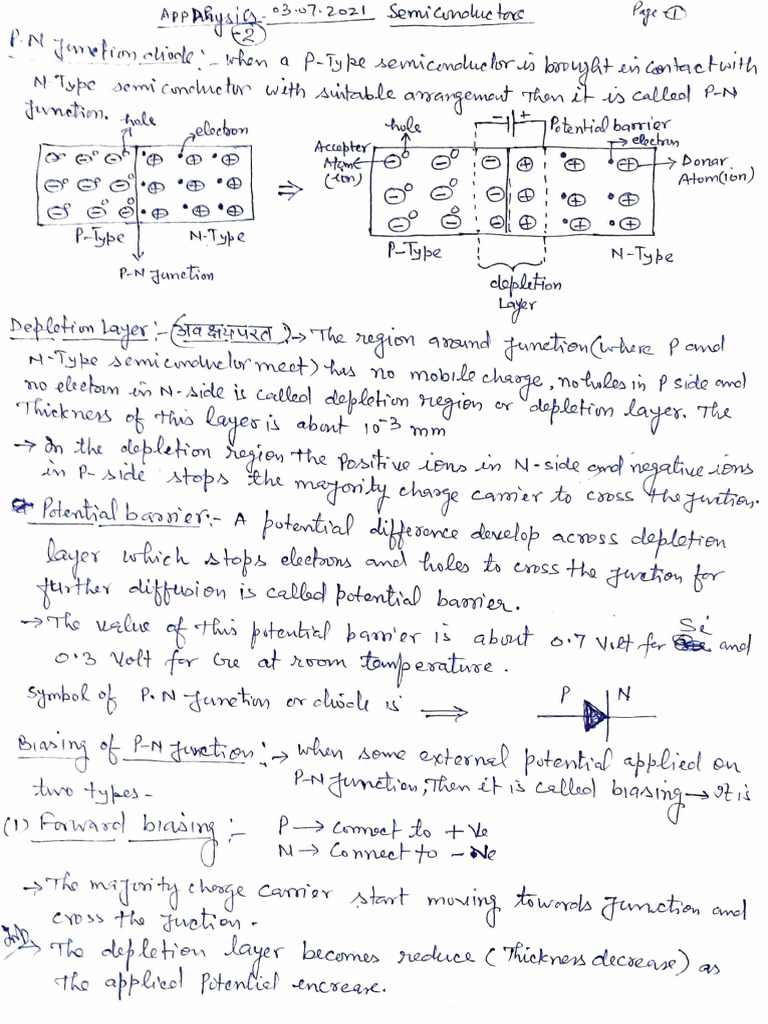 APP Physics-2 03.07.2021 Semiconductors Page ①
P.N Junction diode:- when a P-Type semiconductor is brought in contact with
N-Type semiconductor with suitable arrangement Then it is called P-N
Junction.
hole
electron
hole
- +
Potential barrier
electron
Accepter
Atom
(ion)
Donar
Atom(ion)
P-Type
N-Type
⇒
P-Type
N-Type
P-N Junction
depletion
Layer
Depletion Layer:- (अवक्षयपरत):→ The region around junction (where P and
N-Type semiconductor meet) has no mobile charge, no holes in P side and
no electorn in N-side is called depletion region or depletion layer. The
Thickness of this layer is about 10⁻³ mm
→ In the depletion region the Positive ions in N-side and negative ions
in P-side stops the majority charge carrier to cross the juction.
Potential barrier:- A potential difference develop across depletion
layer which stops electrons and holes to cross the juction for
further diffusion is called potential barrier.
→ The value of this potential barrier is about 0.7 Volt for Si and
0.3 Volt for Ge at room tamperature.
Symbol of P.N Junction or diode is ⇒ P N
Biasing of P-N Junction:→ when some external potential applied on
P-N Junction, Then it is called biasing → It is
two types-
(1) Forward biasing:- P → connect to +ve
N → Connect to -Ve
→ The majority charge carrier start moving towards junction and
cross the juction.
→ The depletion layer becomes reduce (Thickness decrease) as
the applied Potential encrease.